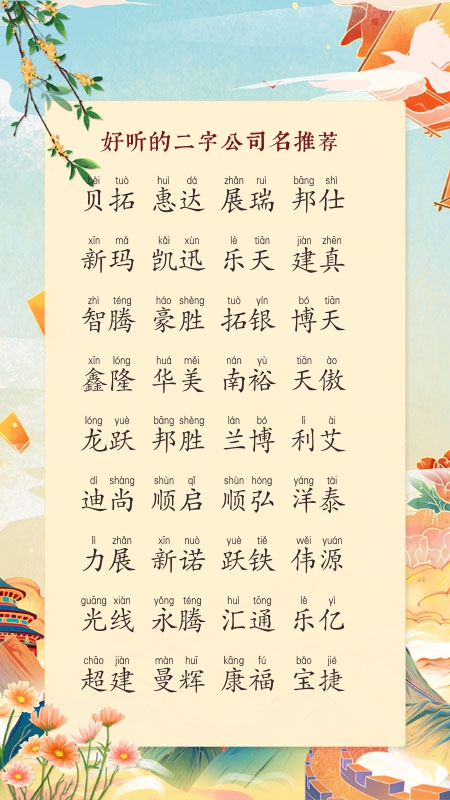 好听的二字公司名推荐
bèi tuò huì dá zhǎn ruì bāng shì
贝拓 惠达 展瑞 邦仕
xīn mǎ kǎi xùn lè tiān jiàn zhēn
新玛 凯迅 乐天 建真
zhì téng háo shèng tuò yín bó tiān
智腾 豪胜 拓银 博天
xīn lóng huá měi nán yù tiān ào
鑫隆 华美 南裕 天傲
lóng yuè bāng shèng lán bó lì ài
龙跃 邦胜 兰博 利艾
dí shàng shùn qǐ shùn hóng yáng tài
迪尚 顺启 顺弘 洋泰
lì zhǎn xīn nuò yuè tiě wěi yuán
力展 新诺 跃铁 伟源
guāng xiàn yǒng téng huì tōng lè yì
光线 永腾 汇通 乐亿
chāo jiàn màn huī kāng fú bǎo jié
超建 曼辉 康福 宝捷